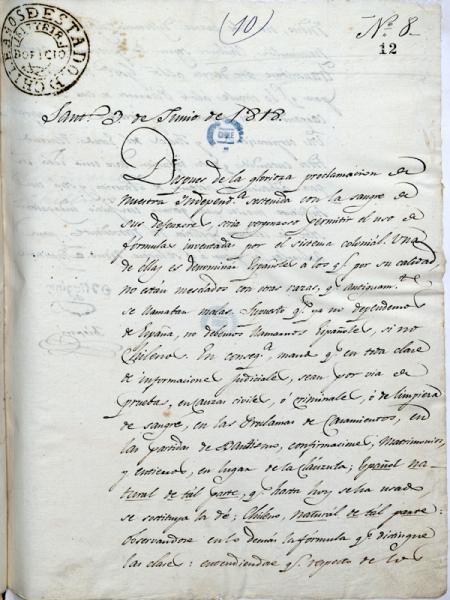 (10)
N.º 8.
12
Sant.º 3. de Junio de 1818.
Despues de la gloriosa proclamacion de
nuestra Independ.ª sostenida con la sangre de
sus defensores, seria vergonzoso permitir el uso de
fórmulas inventadas por el sistema colonial. Una
de ellas es denominar Españoles á los q.e por su calidad
no están mezclados con otras razas, q.e antiguam.te
se llamaban malas. Supuesto q.e ya no dependemos
de España, no debemos llamarnos Españoles, si no
Chilenos. En conseq.ª mando q.e en toda clase
de informaciones Judiciales, sean por via de
pruebas, en causas civiles, ó criminales, ó de limpieza
de sangre, en las Proclamas de Casamientos, en
las partidas de Bautismo, confirmaciones, Matrimonios,
y entierros, en lugar de la Cláusula: Español na-
tural de tal parte, q.e hasta hoy se ha usado,
se sostituya la de: Chileno, natural de tal parte:
observandose en lo demás la formula q.e distingue
las clases: entendiendose q.e respecto de los